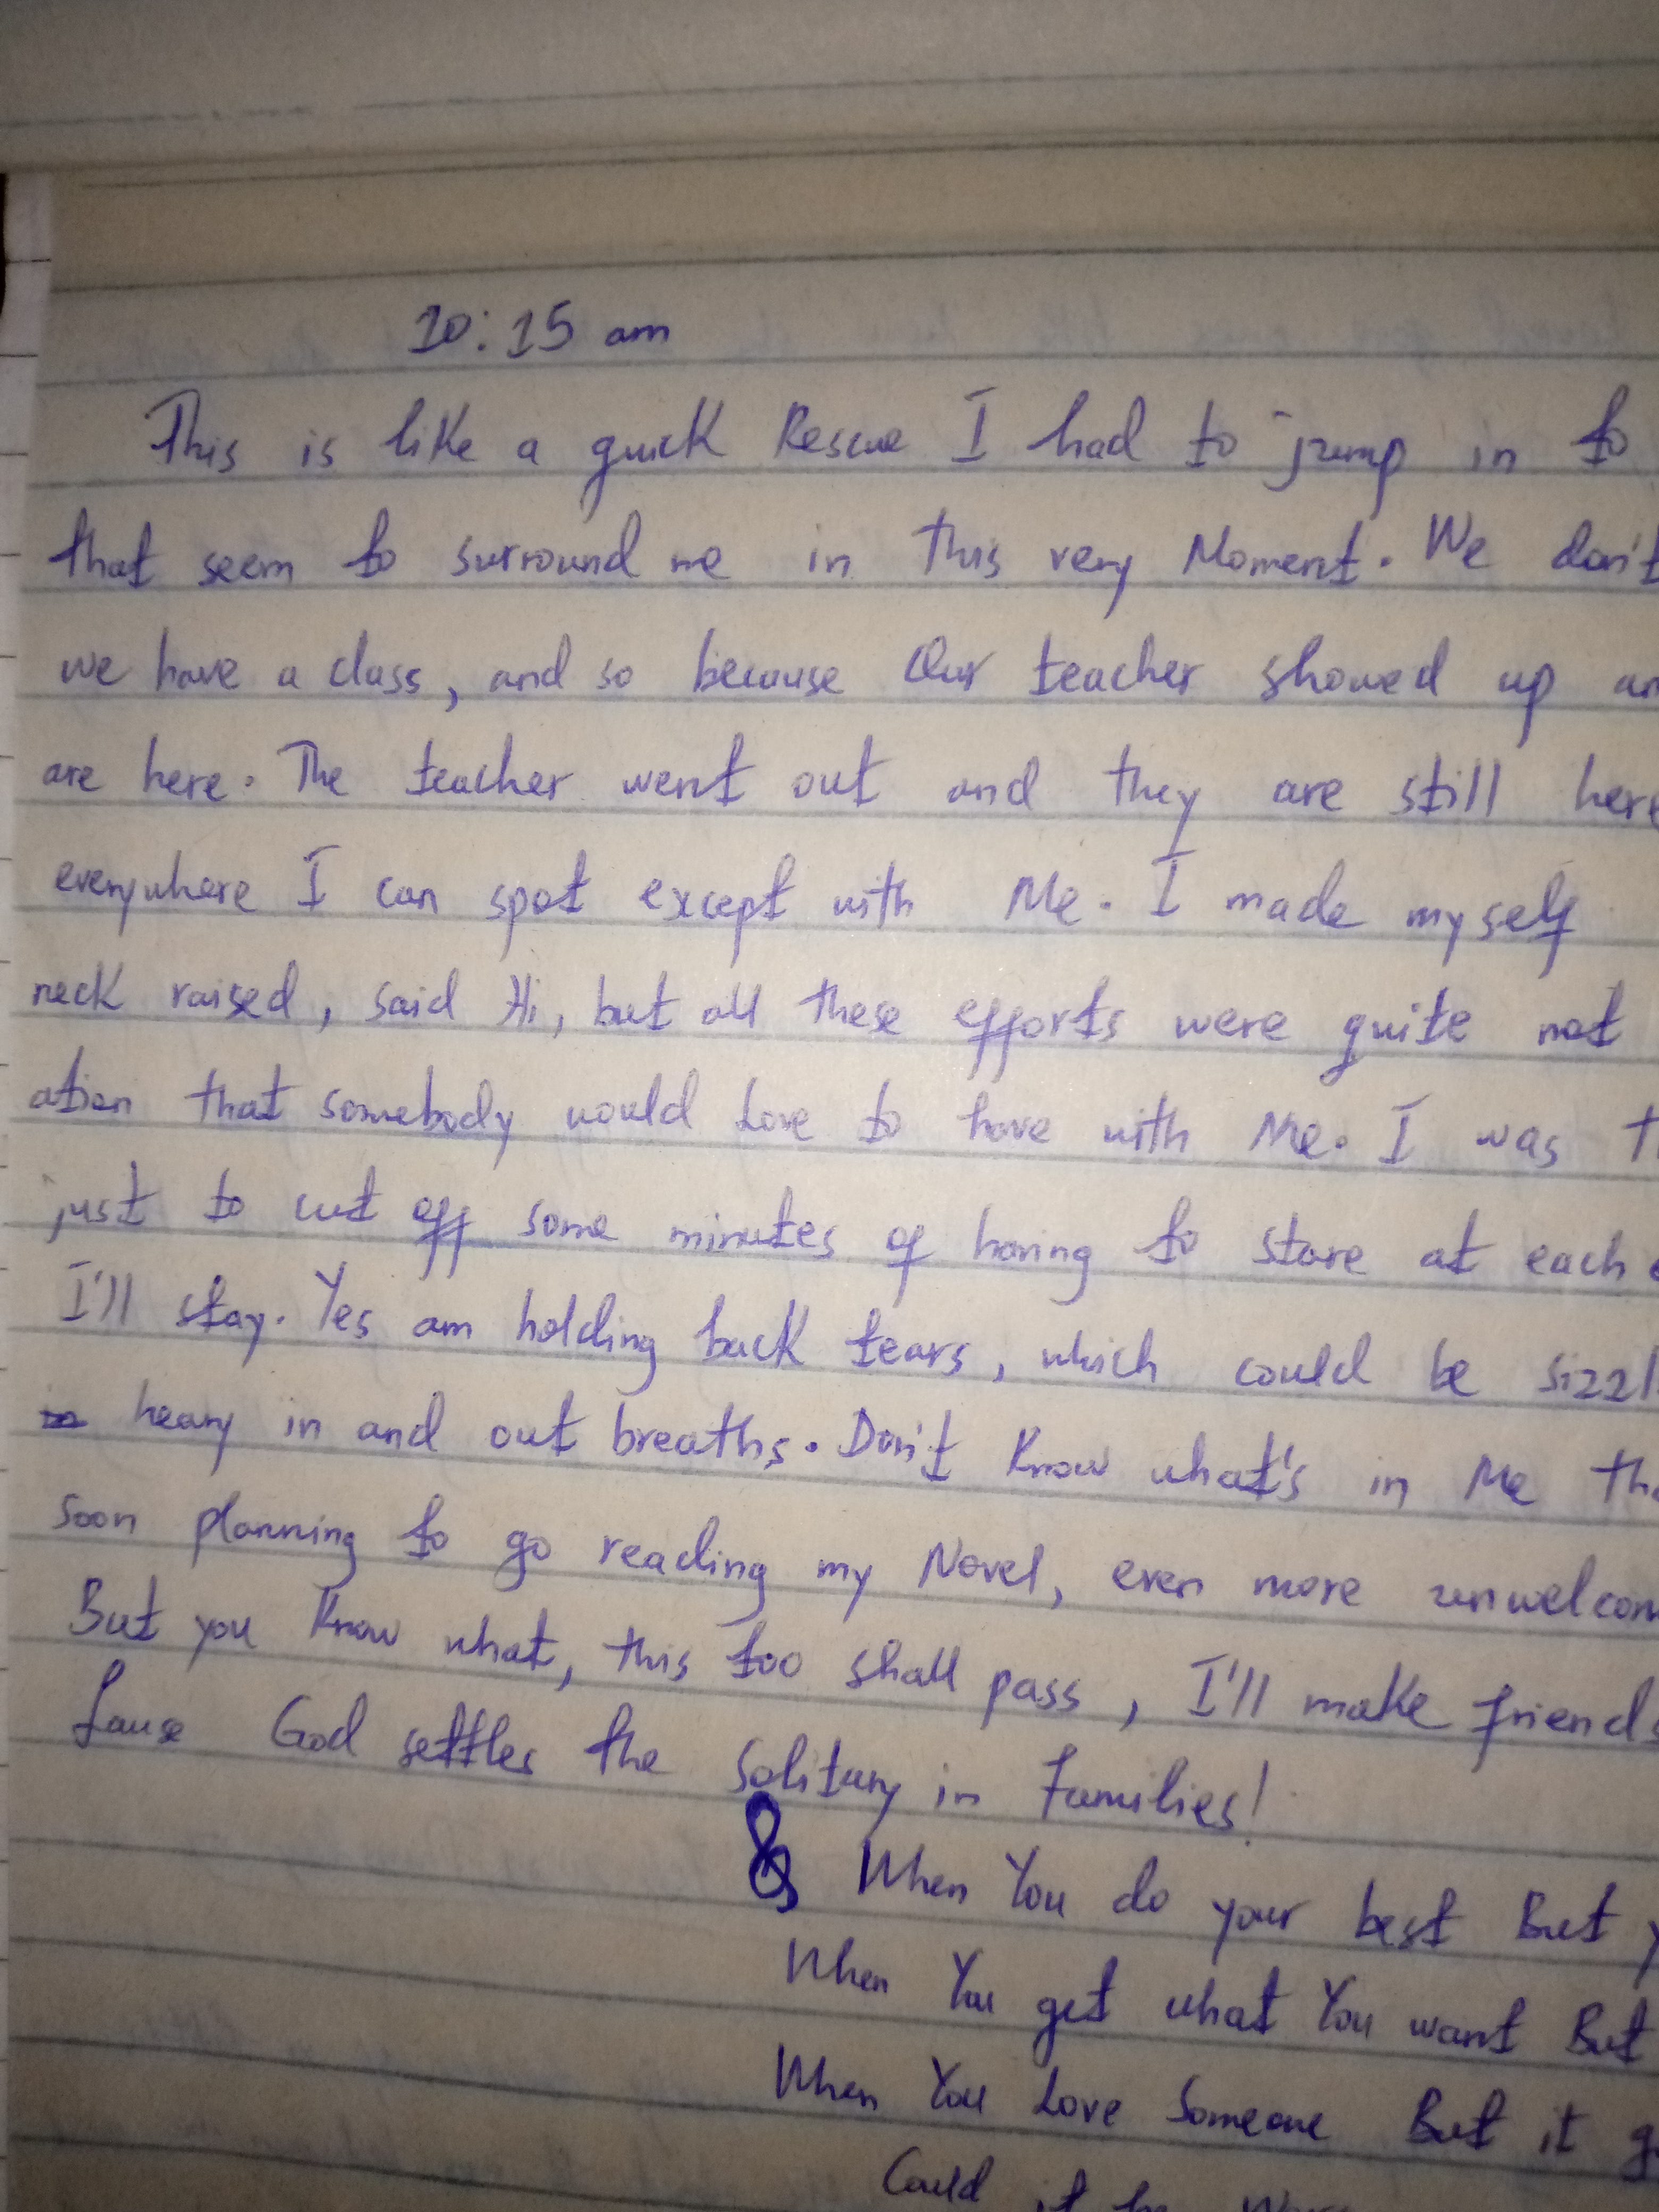 10:15 am
This is like a quick Rescue I had to jump in to
that seem to surround me in this very Moment. We don't
we have a class, and so because Our teacher showed up
are here. The teacher went out and they are still here
everywhere I can spot except with Me. I made myself
neck raised, said Hi, but all these efforts were quite not
ation that somebody would Love to have with Me. I was
just to cut off some minutes of having to stare at each
I'll stay. Yes am holding back tears, which could be
heavy in and out breaths. Don't Know what's in Me
soon planning to go reading my Novel, even more
But you Know what, this too shall pass, I'll make friends
God settles the Solitary in Families!
When You do your best But
When You get what You want But
When You Love Someone But it
Could it be